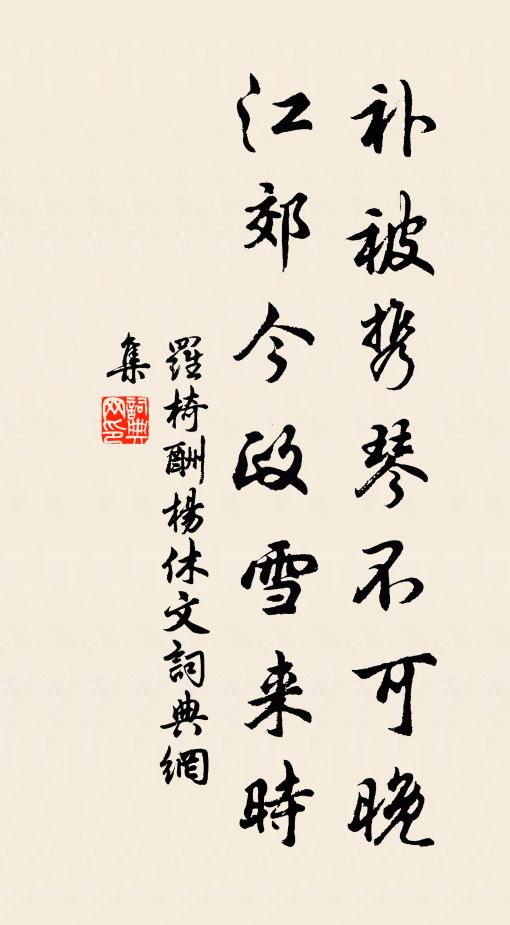 补被携琴不可晚
江郊今政雪来時
羅椅酬楊休文詞典網
集
詞典网印